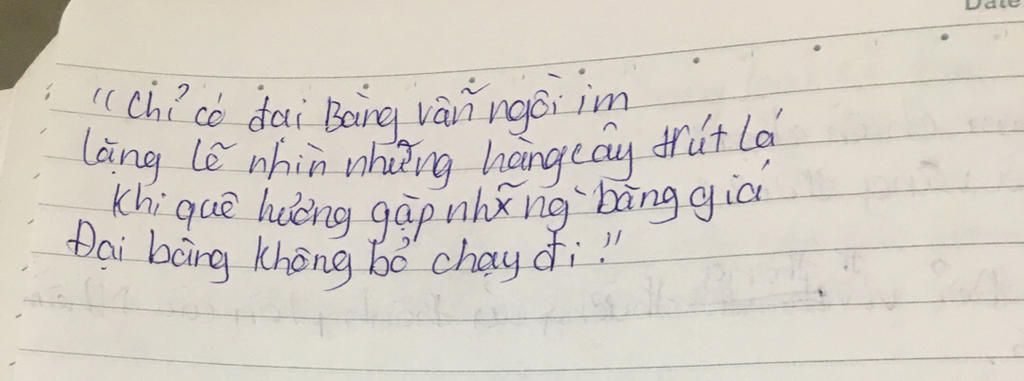 Date
"Chỉ có đại Bàng vẫn ngồi im
lặng lẽ nhìn những hàng cây trút lá
Khi quê hương gặp những băng giá
Đại bàng không bỏ chạy đi!"